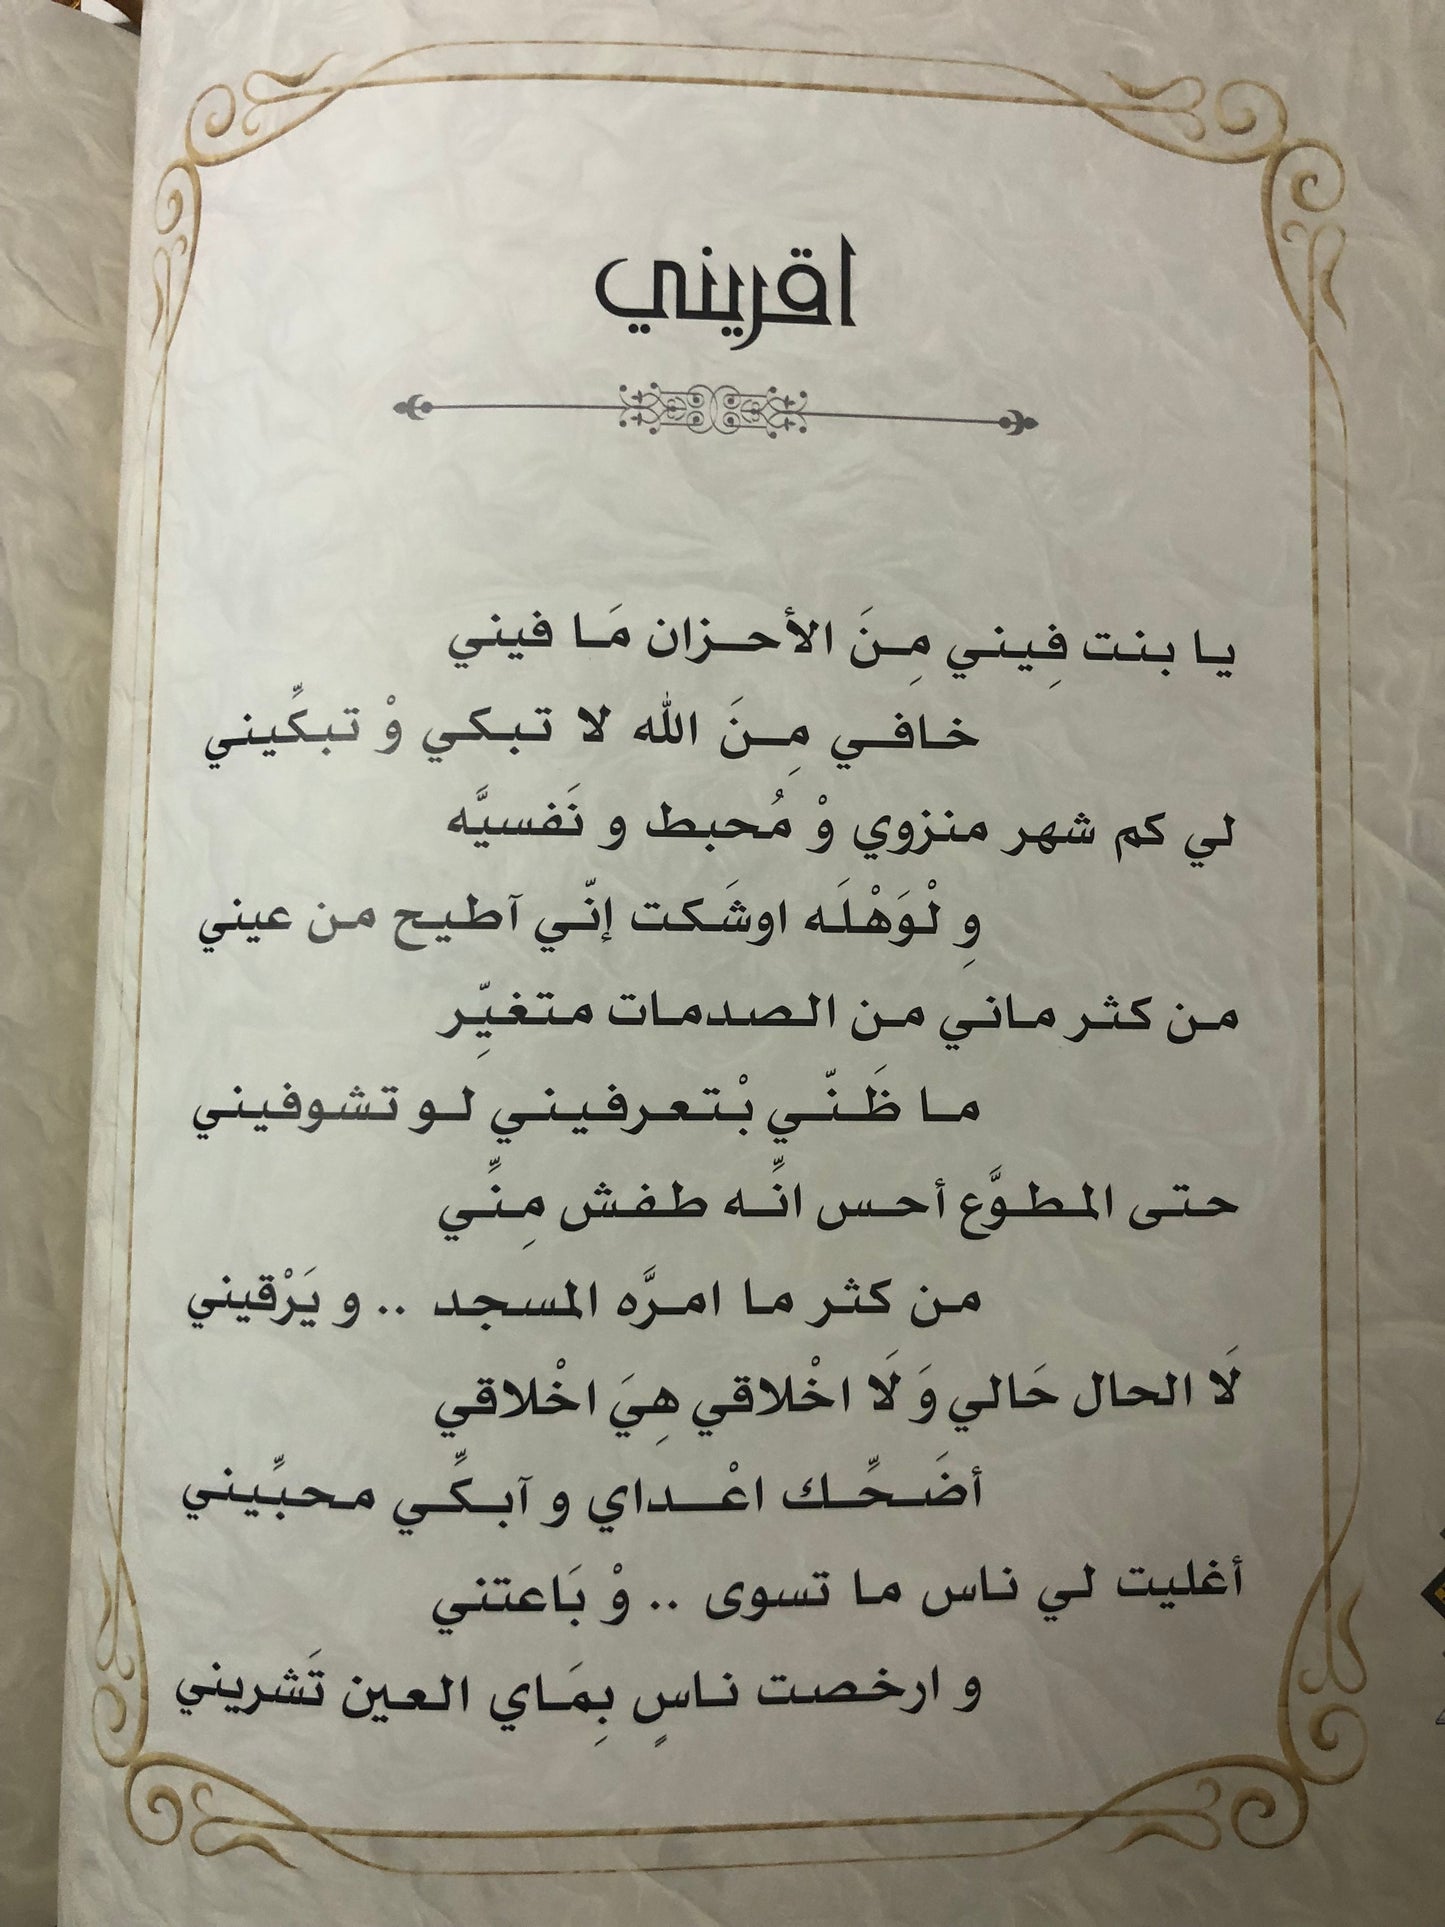 اقريني
يا بنت فِيني مِنَ الأحزان مَا فيني
خافي مِنَ الله لا تبكي وْ تبكِّيني
لي كم شهر منزوي وْ مُحبط و نَفسيَّه
وِ لْوَهْلَه اوشَكت إنّي آطيح من عيني
من كثر ماني من الصدمات متغيِّر
ما ظَنّي بْتعرفيني لو تشوفيني
حتى المطوَّع أحس انِّه طفش مِنِّي
من كثر ما امرَّه المسجد .. و يَرْقيني
لَا الحال حَالي وَ لَا اخْلاقي هِيَ اخْلاقي
أضَحِّك اعْداي و آبكِّي محبِّيني
أغليت لي ناس ما تسوى .. وْ بَاعتني
و ارخصت ناسٍ بِمَاي العين تَشريني